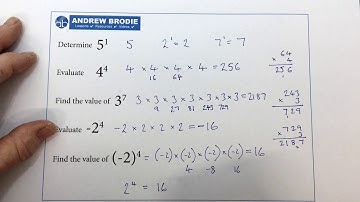 ANDREW BRODIE
Lessons Resources Videos
Determine 5¹ 5 2¹ = 2 7¹ = 7
Evaluate 4⁴ 4 × 4 × 4 × 4 = 256
16 64
64
× 4
256
Find the value of 3⁷ 3 × 3 × 3 × 3 × 3 × 3 × 3 = 2187
9 27 81 243 729
243
× 3
729
Evaluate -2⁴ -2 × 2 × 2 × 2 = -16
729
× 3
2187
Find the value of (-2)⁴ = (-2) × (-2) × (-2) × (-2) = 16
4 -8 16
2⁴ = 16